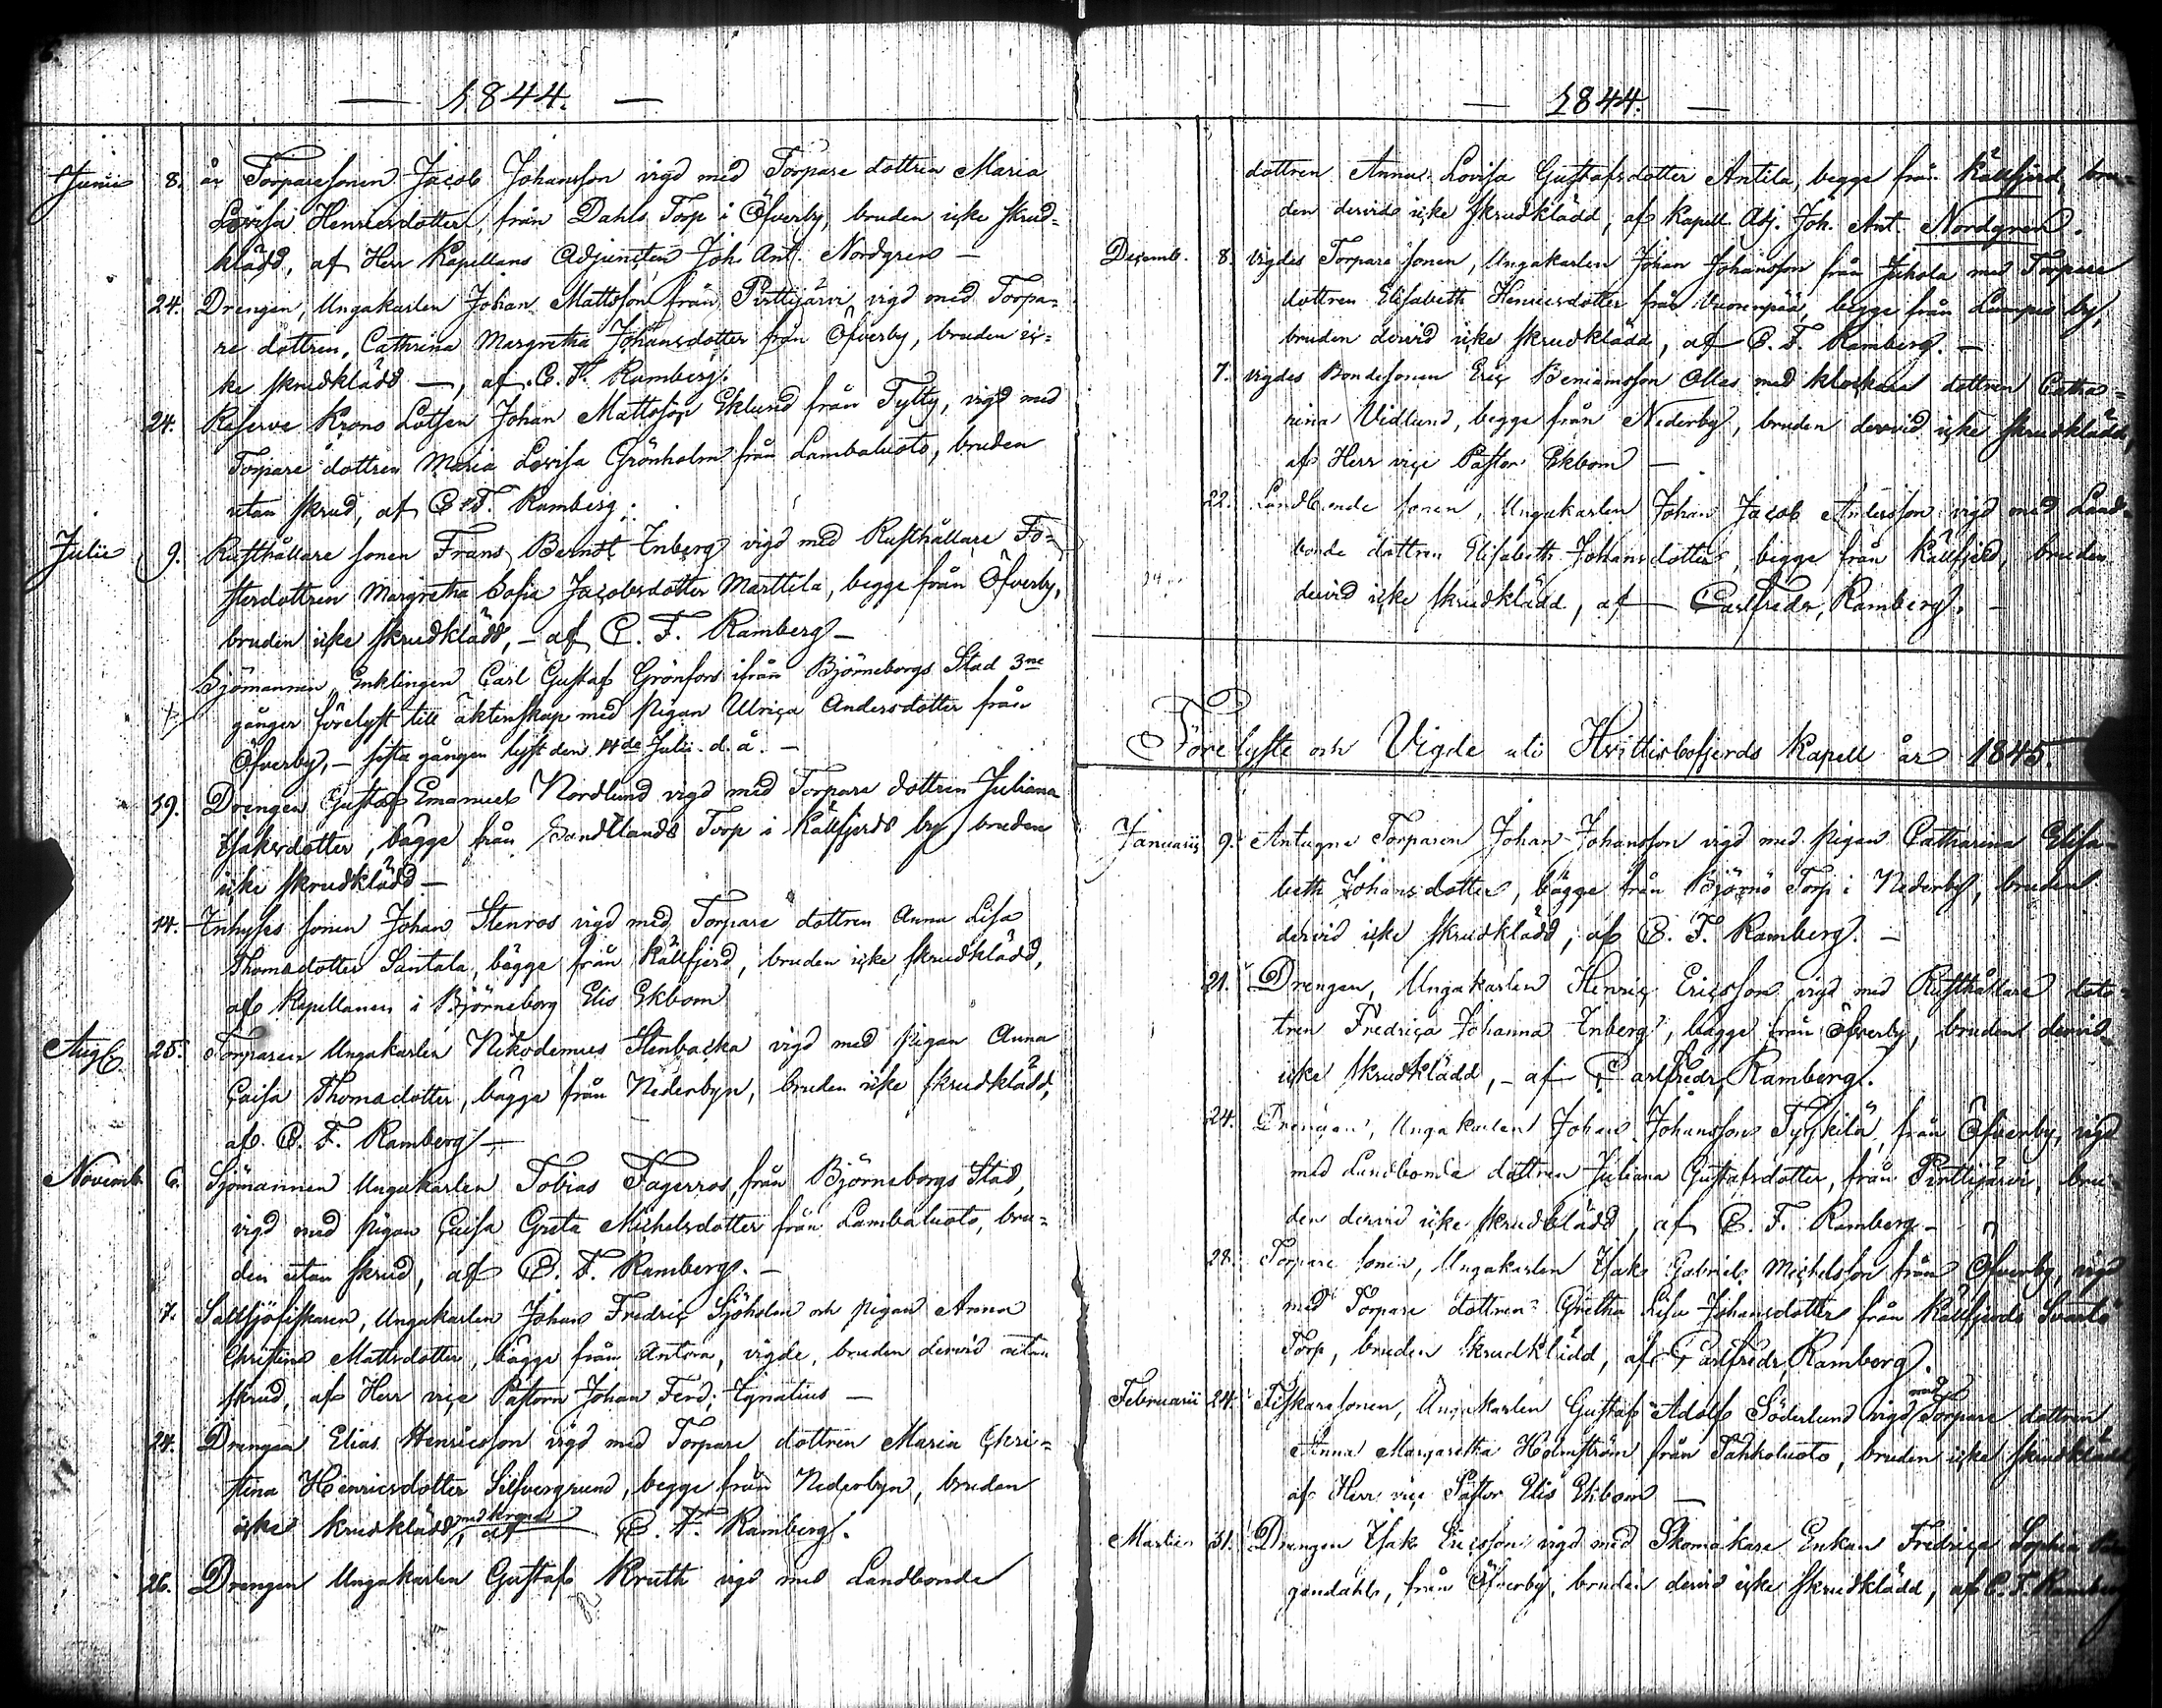 — 1844. —
Junii 8. är Torparesonen Jacob Johansson vigd med Torpare dottren Maria
Lovisa Henricsdotter, från Dahls Torp i Öfverby, bruden icke skrud=
klädd, af Herr Kapellans Adjuncten Joh. Ant. Nordgren —
24. Drengen, Ungakarlen Johan Mattsson från Pirttijärvi vigd med Torpa=
re dottren, Cathrina Margretha Johansdotter från Öfverby, bruden ic=
ke skrudklädd —, af C. F. Ramberg.
24. Reserve Krono Lotsen Johan Mattsson Eklund från Tytty, vigd med
Torpare dottren Maria Lovisa Grönholm från Lambaluoto, bruden
utan skrud, af C. F. Ramberg.
Julii 9. Rusthållare sonen Frans Berndt Inberg vigd med Rusthållare Fo=
sterdottren Margretha Sofia Jacobsdotter Marttila, begge från Öfverby,
bruden icke skrudklädd, — af C. F. Ramberg —
Sjömannen Enklingen Carl Gustaf Grönfors ifrån Björneborgs Stad 3ne
gånger förelyst till äktenskap med pigan Ulrica Andersdotter från
Öfverby, — sista gången lyst den 14de Julii d. å. —
19. Drengen Gustaf Emanuel Nordlund vigd med Torpare dottren Juliana
Isaksdotter, bägge från Sandlands Torp i Källfjerds by, bruden
icke skrudklädd —
14. Inhyses sonen Johan Stenros vigd med Torpare dottren Anna Lisa
Thomasdotter Santala, bägge från Källfjerd, bruden icke skrudklädd,
af Kapellanen i Björneborg Elis Ekbom
Aug. 25. Torparen Ungakarlen Nikodemus Stenbacka vigd med pigan Anna
Caisa Thomasdotter, bägge från Nederbyn, bruden icke skrudklädd,
af C. F. Ramberg —
Novemb. 6. Sjömannen Ungakarlen Tobias Fagerros, från Björneborgs Stad,
vigd med pigan Caisa Greta Michelsdotter från Lambaluoto, bru=
den utan skrud, af C. F. Ramberg. —
7. Saltsjöfiskaren, Ungakarlen Johan Fredric Sjöholm och pigan Anna
Christina Mattsdotter, bägge från Antora, vigde, bruden dervid utan
skrud, af Herr vice Pastorn Johan Ferd. Ignatius —
24. Drengen Elias Henricsson vigd med Torpare dottren Maria Chri=
stina Henricsdotter Silfvergrund, begge från Nederbyn, bruden
icke skrudklädd, med krona af C. F. Ramberg.
26. Drengen Ungakarlen Gustaf Kruth vigd med Landbonde
— 1844. —
dottren Anna Lovisa Gustafsdotter Antila, begge från Källfjerd, bru=
den dervid icke skrudklädd, af Kapell. Adj. Joh. Ant. Nordgren.
Decemb. 8. vigdes Torpare sonen, Ungakarlen Johan Johansson från Juhola med Torpare
dottren Elisabeth Henricsdotter från Vuorenpää, begge från Lampis by,
bruden dervid icke skrudklädd, af C. F. Ramberg. —
7. vigdes Bondesonen Eric Beniamsson Ollas med klockare dottren Catha=
rina Vidlund, begge från Nederby, bruden dervid icke skrudklädd,
af Herr vice Pastor Ekbom —
22. Landbonde sonen, Ungakarlen Johan Jacob Andersson vigd med Land=
bonde dottren Elisabeth Johansdotter, begge från Källfjerd, bruden
dervid icke skrudklädd, af Carl Fredr. Ramberg. —
Förelyste och Vigde uti Hvittisbofjerds Kapell år 1845.
Januarii 9. Antagne Torparen Johan Johansson vigd med pigan Catharina Elisa=
beth Johansdotter, bägge från Björnö Torp i Nederby, bruden
dervid icke skrudklädd, af C. F. Ramberg. —
21. Drengen, Ungakarlen Henric Ericsson vigd med Rusthållare dot=
tren Fredrica Johanna Inberg, bägge från Öfverby, bruden dervid
icke skrudklädd, — af Carl Fredr. Ramberg.
24. Drengen, Ungakarlen Johan Johansson Tyskilä, från Öfverby, vigd
med Landbonde dottren Juliana Gustafsdotter, från Pirttijärvi, bru=
den dervid icke skrudklädd, af C. F. Ramberg —
28. Torpare sonen, Ungakarlen Isak Gabriel Michelsson från Öfverby, vigd
med Torpare dottren Gretha Lisa Johansdotter från Källfjerds Svartö
Torp, bruden skrudklädd, af Carl Fredr. Ramberg.
Februarii 24. Fiskaresonen, Ungakarlen Gustaf Adolf Söderlund vigd med Torpare dottren
Anna Margaretha Holmström från Tahkoluoto, bruden icke skrudklädd,
af Herr vice Pastor Elis Ekbom —
Martii 31. Drengen Isak Ericsson vigd med Skomakare Enkan Fredrica Sophia
gendahl, från Öfverby, bruden dervid icke skrudklädd, af C. F. Ramberg